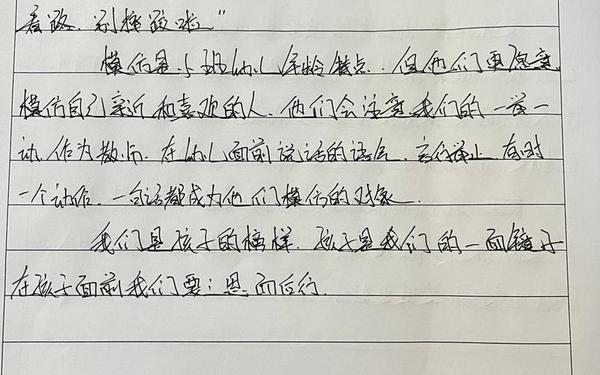 看路，别摔跤啦”
模仿是小班幼儿年龄特点，但他们更愿意
模仿自己亲近和喜欢的人，他们会注意我们的一举一
动，作为教师，在幼儿面前说话的语气，言行举止，有时
一个动作，一句话都成为他们模仿的对象。
我们是孩子的榜样，孩子是我们的一面镜子
在孩子面前我们要三思而后行。